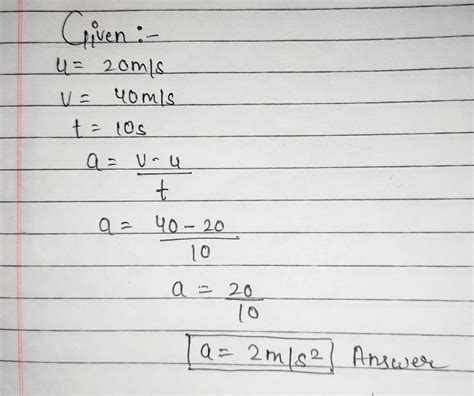 Given :-
u = 20m/s
v = 40m/s
t = 10s
a = v - u / t
a = 40 - 20 / 10
a = 20 / 10
a = 2m/s² Answer